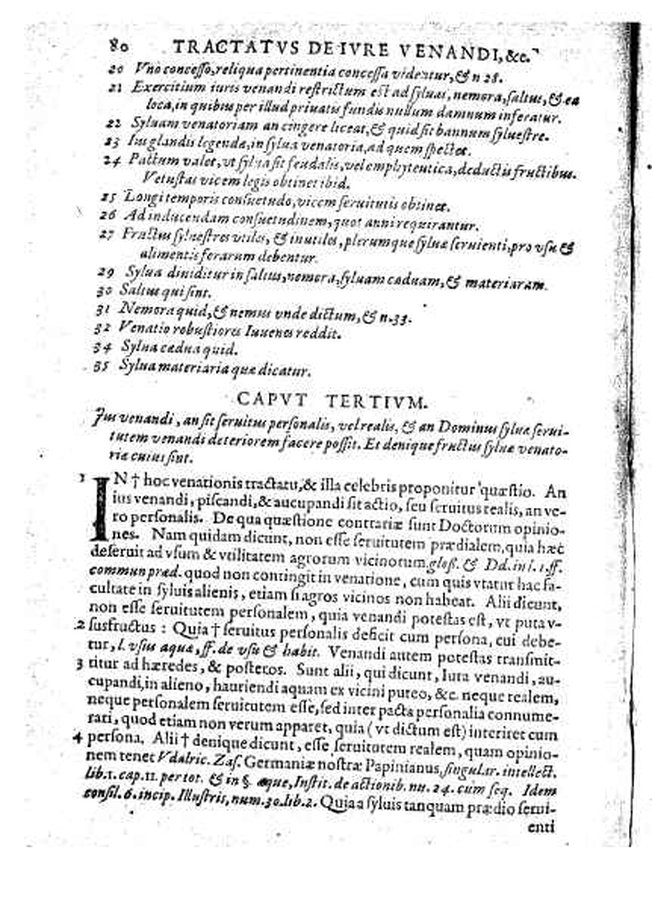 80 TRACTATVS DE IVRE VENANDI, &c.
20 Vno concesso, reliqua pertinentia concessa videntur, & n 28.
21 Exercitium iuris venandi restrictum est ad syluas, nemora, saltus, & ea
loca, in quibus per illud priuatis fundis nullum damnum inferatur.
22 Syluam venatoriam an cingere liceat, & quid sit bannum syluestre.
23 Ius glandis legendæ, in sylua venatoria, ad quem spectet.
24 Pactum valet, vt sylua sit feudalis, vel emphyteutica, deductis fructibus.
Vetustas vicem legis obtinet ibid.
25 Longi temporis consuetudo, vicem seruitutis obtinet.
26 Ad inducendam consuetudinem, quot anni requirantur.
27 Fructus syluestres vtiles, & inutiles, plerumque syluæ seruienti, pro vsu &
alimentis ferarum debentur.
29 Sylua diuiditur in saltus, nemora, syluam cæduam, & materiaram.
30 Saltus qui sint.
31 Nemora quid, & nemus vnde dictum, & n. 33.
32 Venatio robustiores Iuuenes reddit.
34 Sylua cædua quid.
35 Sylua materiaria quæ dicatur.
CAPVT TERTIVM.
Jus venandi, an sit seruitus personalis, vel realis, & an Dominus syluæ serui-
tutem venandi deteriorem facere possit. Et denique fructus syluæ venato-
riæ cuius sint.
1 IN † hoc venationis tractatu, & illa celebris proponitur quæstio. An
ius venandi, piscandi, & aucupandi sit actio, seu seruitus realis, an ve-
ro personalis. De qua quæstione contrariæ sunt Doctorum opinio-
nes. Nam quidam dicunt, non esse seruitutem prædialem, quia hæc
deseruit ad vsum & vtilitatem agrorum vicinorum gloss. & Dd. in l. 1. ff.
commun præd. quod non contingit in venatione, cum quis vtatur hac fa-
cultate in syluis alienis, etiam si agros vicinos non habeat. Alii dicunt,
non esse seruitutem personalem, quia venandi potestas est, vt puta v-
2 susfructus : Quia † seruitus personalis deficit cum persona, cui debe-
tur, l. vsus aquæ, ff. de vsu & habit. Venandi autem potestas transmit-
3 titur ad hæredes, & posteros. Sunt alii, qui dicunt, Iura venandi, au-
cupandi, in alieno, hauriendi aquam ex vicini puteo, &c. neque realem,
neque personalem seruitutem esse, sed inter pacta personalia connume-
rari, quod etiam non verum apparet, quia ( vt dictum est) interiret cum
4 persona. Alii † denique dicunt, esse seruitutem realem, quam opinio-
nem tenet Vdalric. Zas. Germaniæ nostræ Papinianus, singular. intellect.
lib. 1. cap. 11. per tot. & in §. æque, Instit. de actionib. nu. 24. cum seq. Idem
consil. 6. incip. Illustris, num. 30. lib. 2. Quia a syluis tanquam prædio serui-
enti